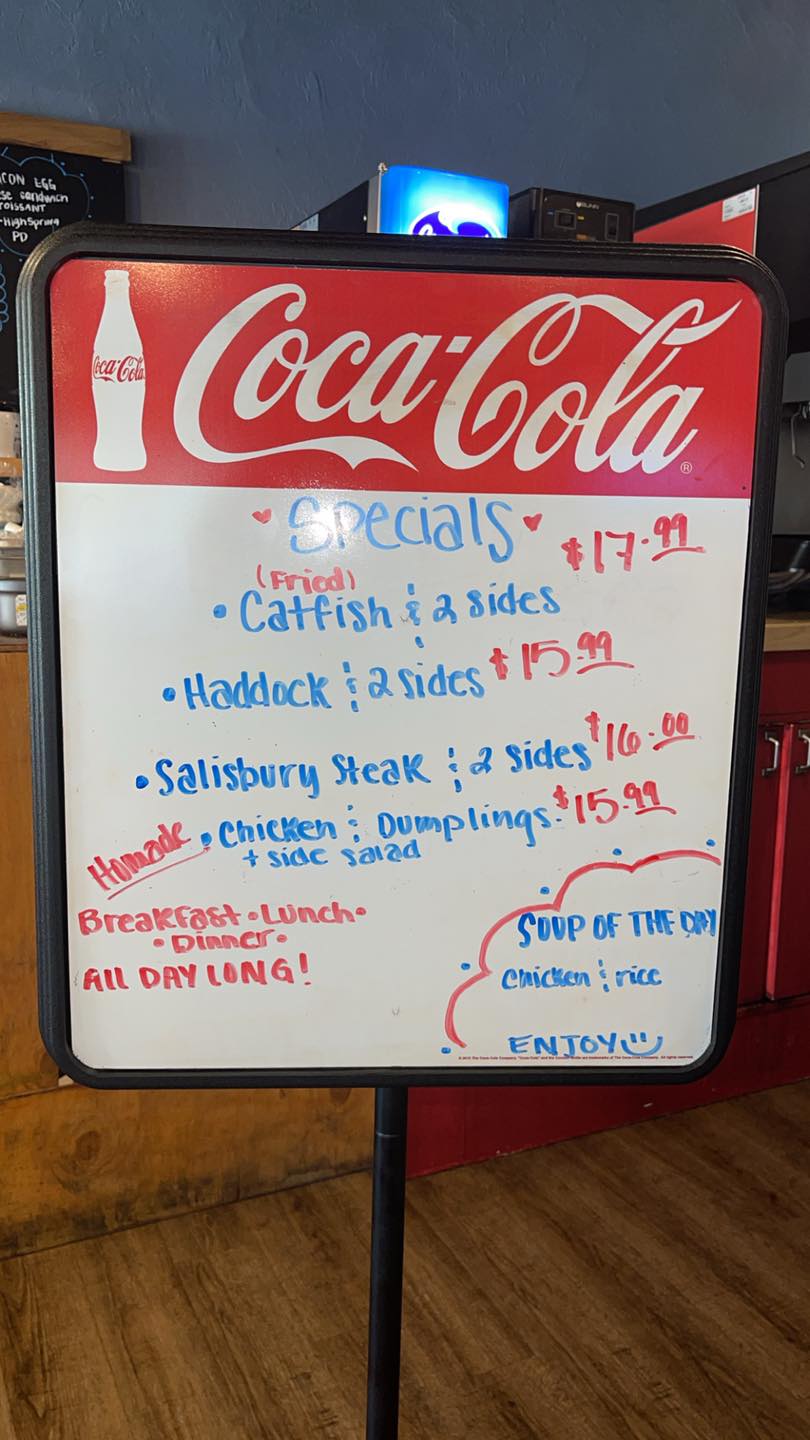 EGG
sandwich
High Spring
PD
BUNN
Coca-Cola
Coca-Cola®
Specials
$17.99
(Fried)
• Catfish & 2 sides
• Haddock & 2 sides $15.99
• Salisbury Steak & 2 sides $16.00
Homade • Chicken & Dumplings $15.99
+ side salad
Breakfast • Lunch •
• Dinner •
ALL DAY LONG!
SOUP OF THE DAY
Chicken & rice
ENJOY